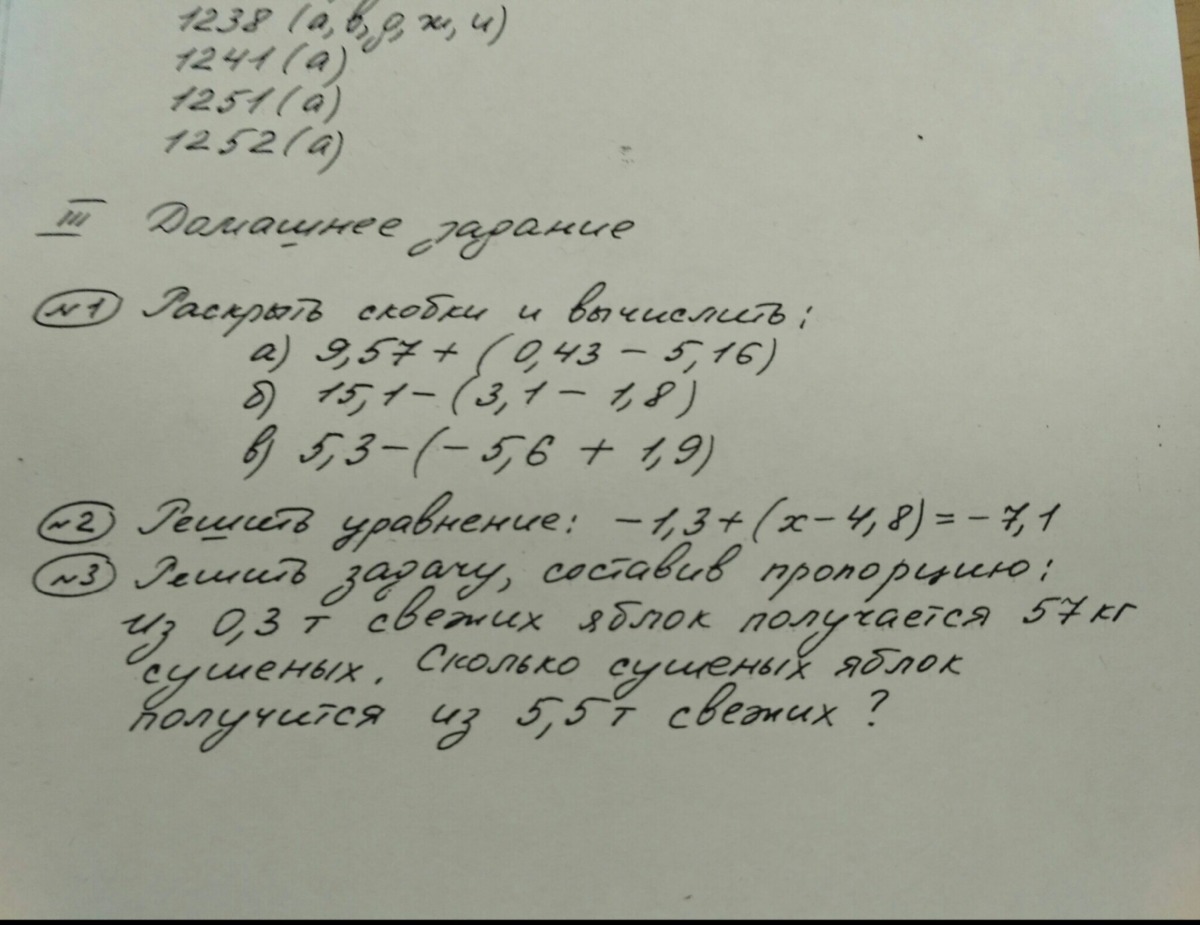 1238 (а, в, д, ж, и)
1241 (а)
1251 (а)
1252 (а)
III Домашнее задание
№1 Раскрыть скобки и вычислить:
а) 9,57 + (0,43 − 5,16)
б) 15,1 − (3,1 − 1,8)
в) 5,3 − (− 5,6 + 1,9)
№2 Решить уравнение: −1,3 + (x − 4,8) = −7,1
№3 Решить задачу, составив пропорцию:
Из 0,3 т свежих яблок получается 57 кг
сушеных. Сколько сушеных яблок
получится из 5,5 т свежих ?